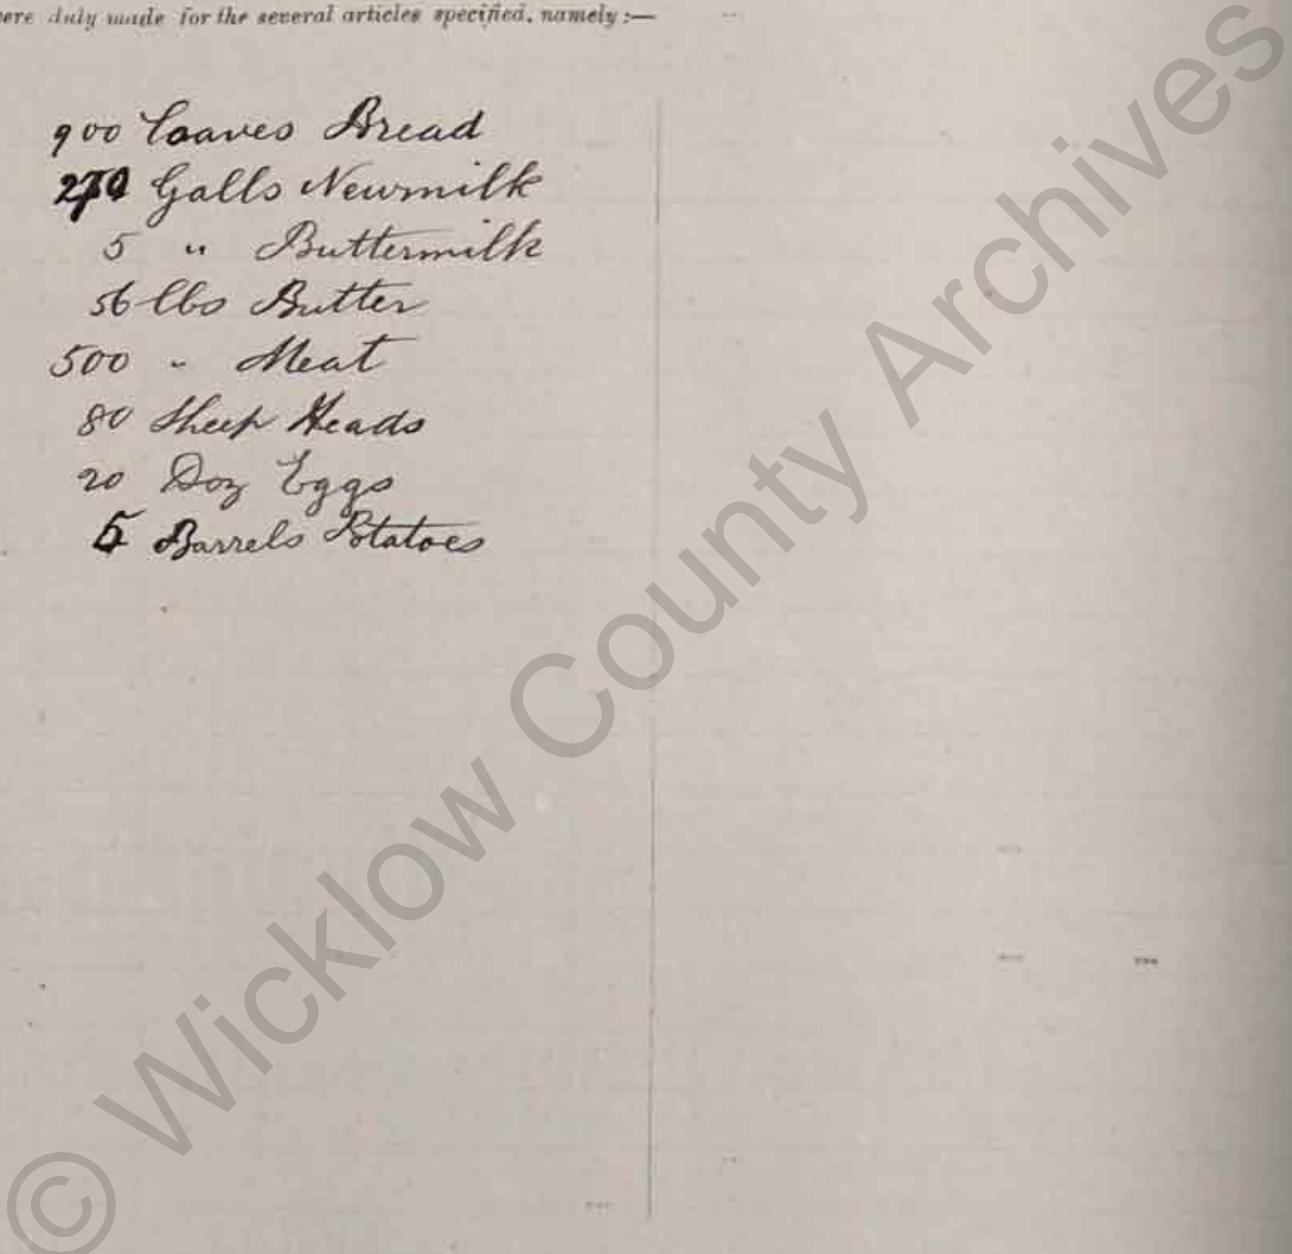 ere duly made for the several articles specified, namely :—
900 Loaves Bread
270 Galls Newmilk
5 " Buttermilk
56 lbs Butter
500 " Meat
80 Sheep Heads
20 Doz Eggs
5 Barrels Potatoes
© Wicklow County Archives